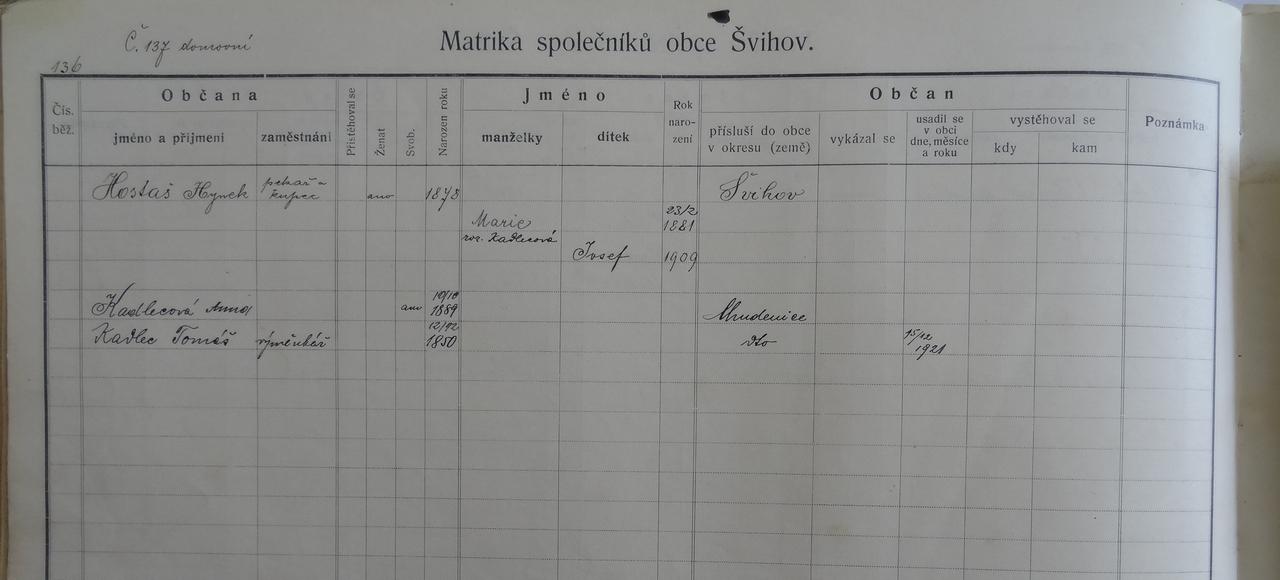 Č. 137 domovní
Matrika společníků obce Švihov.
136
Čís. běž.
Občana
jméno a přijmení
zaměstnání
Přistěhoval se
Ženat
Svob.
Narozen roku
Jméno
manželky
dítek
Rok naro- zení
Občan
přísluší do obce v okresu (zemë)
vykázal se
usadil se v obci dne, měsíce a roku
vystěhoval se
kdy
kam
Poznámka
Hostaš Hynek pekař a kupec ano 1878 Švihov
Marie roz. Kadlecová 23/2 1881
Josef 1909
Kadlecová Anna ano 10/10 1889 Chudenice
Kadlec Tomáš výměnkář 12/12 1850 dto 15/12 1921